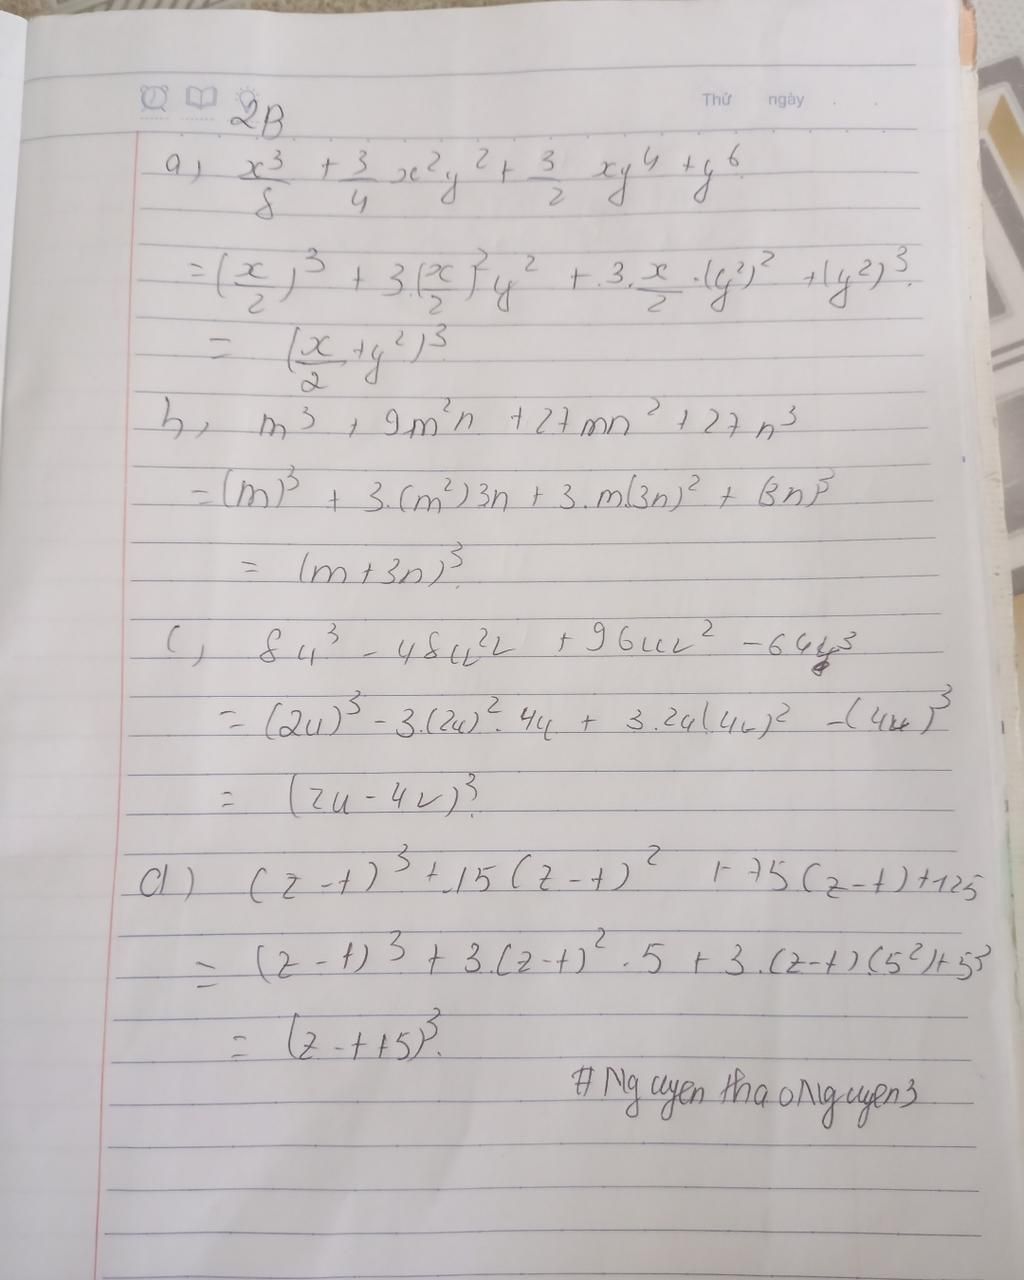 Thứ ngày
2B
a, x³/8 + 3/4 x²y² + 3/2 xy⁴ + y⁶
= (x/2)³ + 3.(x/2)² y² + 3.x/2.(y²)² + (y²)³.
= (x/2 + y²)³
b, m³ + 9m²n + 27mn² + 27n³
= (m)³ + 3.(m²)3n + 3.m(3n)² + (3n)³
= (m+3n)³.
c, 8u³ - 48u²v + 96uv² - 64v³
= (2u)³ - 3.(2u)².4v + 3.2u(4v)² - (4v)³
= (2u - 4v)³.
d) (z-t)³ + 15(z-t)² + 75(z-t) + 125
= (z-t)³ + 3.(z-t)².5 + 3.(z-t)(5²) + 5³
= (z-t+5)³.
#NguyenthaoNguyen3